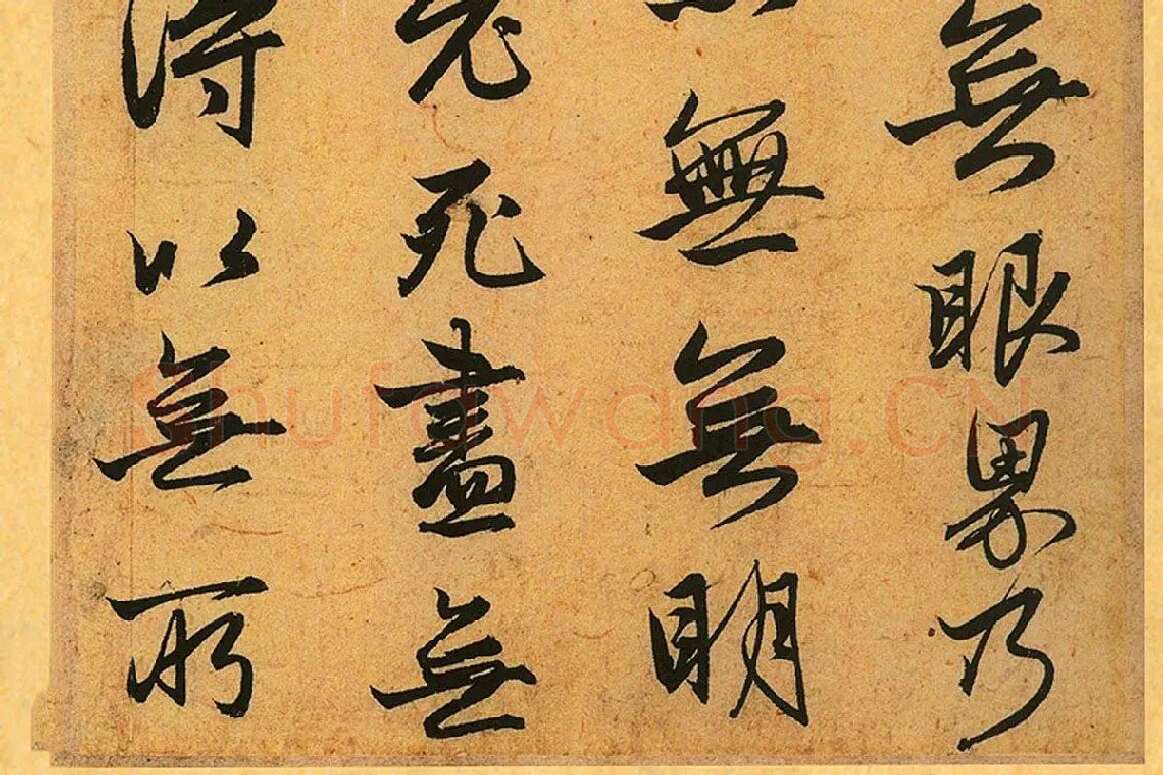 無眼界乃
無無明
老死盡無
得以無所
Shufawang.CN